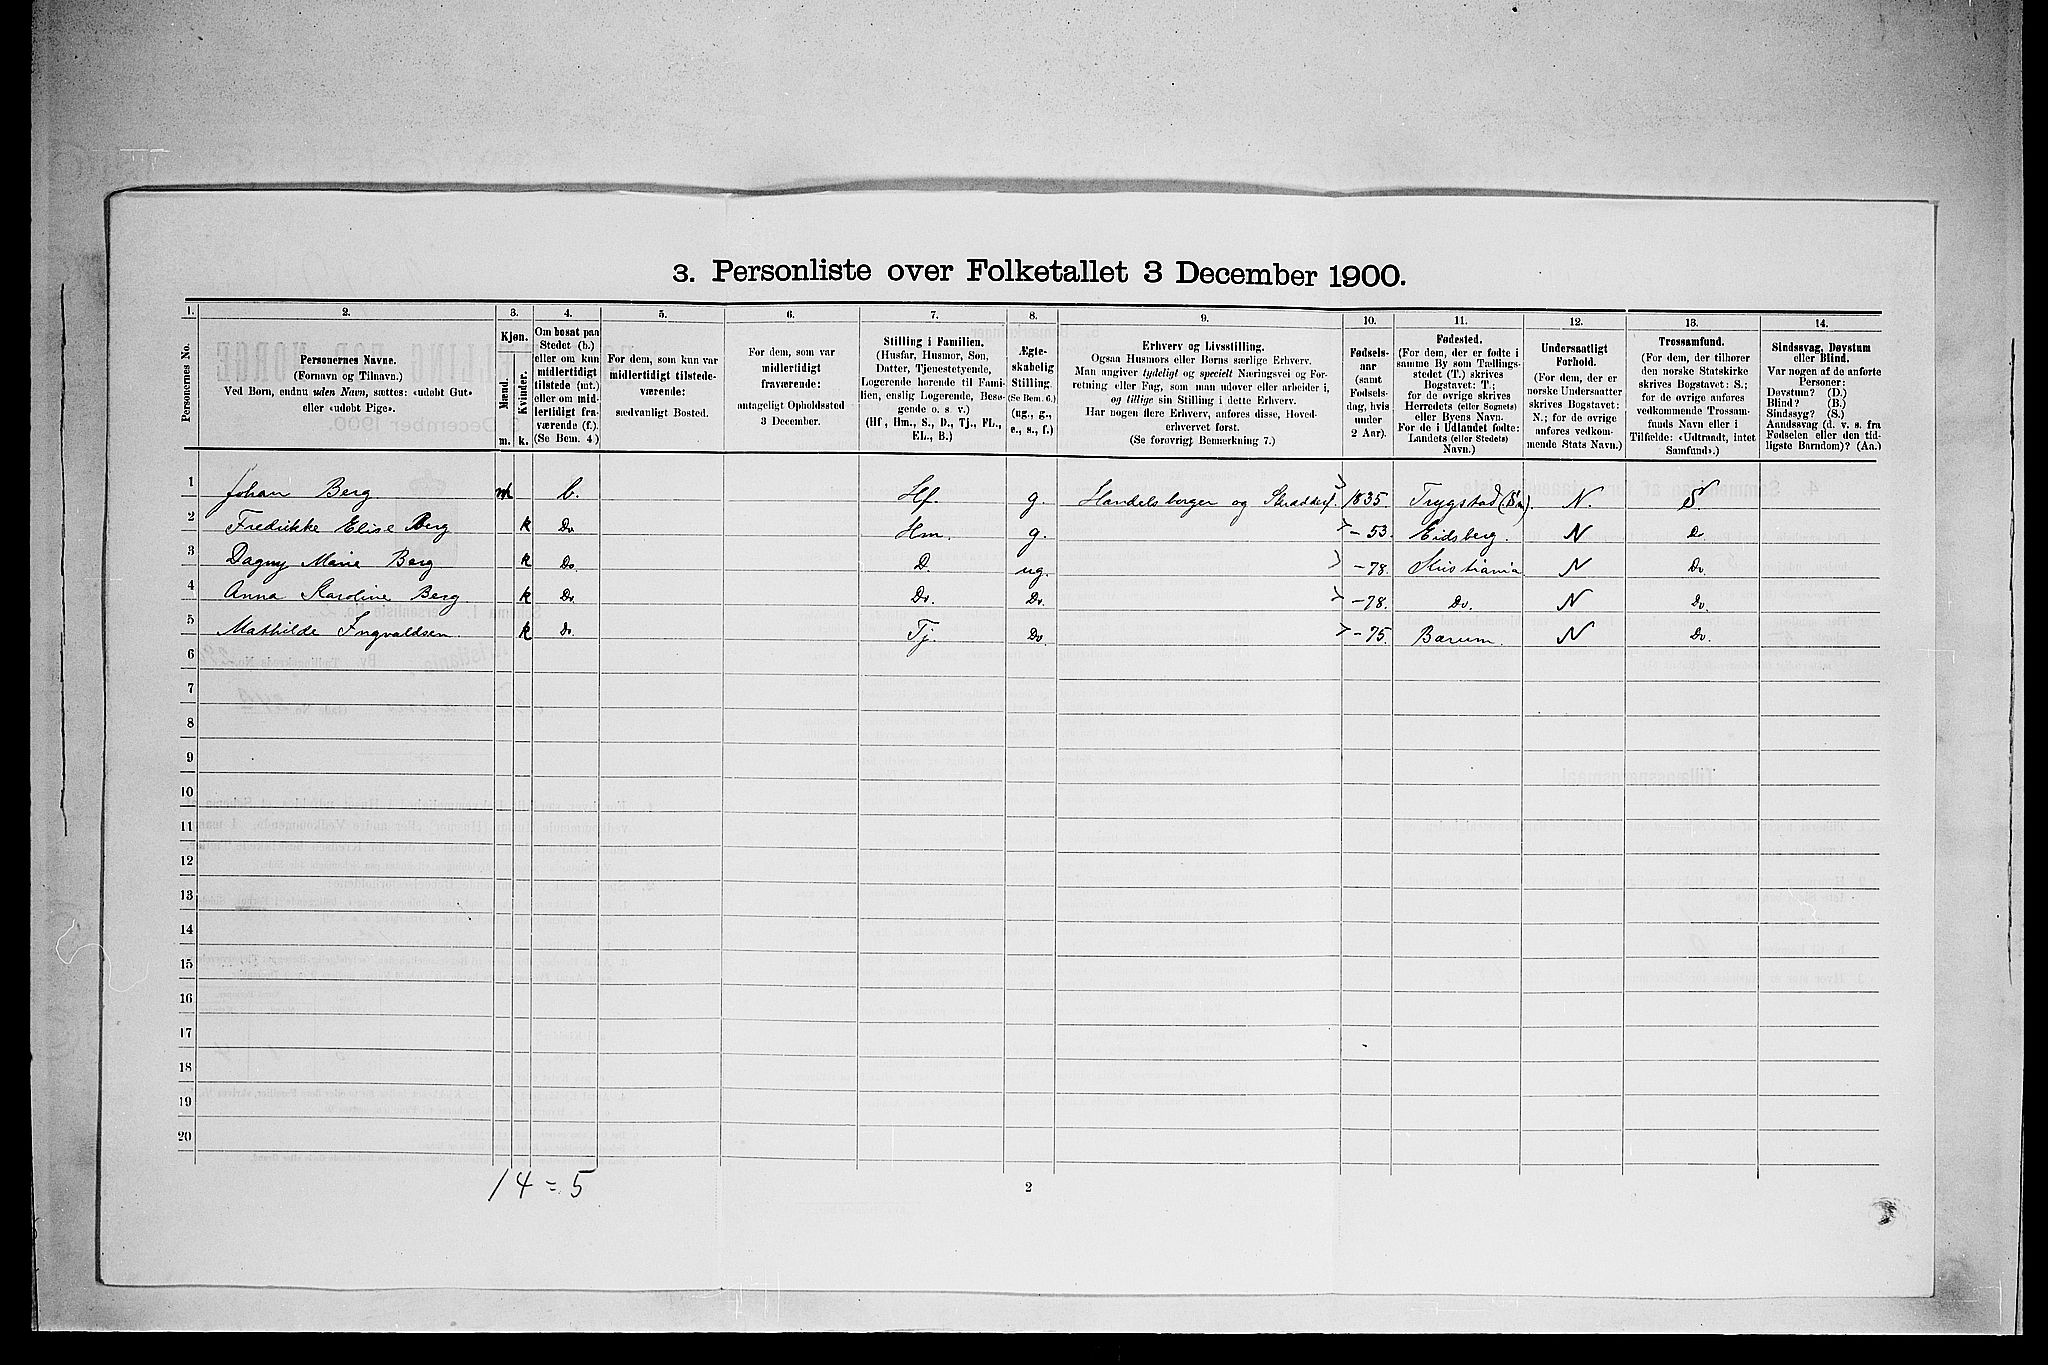 3. Personliste over Folketallet 3 December 1900.
1. 2. 3. 4. 5. 6. 7. 8. 9. 10. 11. 12. 13. 14.
Personernes No.
Personernes Navne.
(Fornavn og Tilnavn.)
Ved Børn, endnu uden Navn, sættes: «udøbt Gut»
eller «udøbt Pige».
Kjøn.
Mænd.
Kvinder.
m. k.
Om bosat paa
Stedet (b.)
eller om kun
midlertidigt
tilstede (mt.)
eller om mid-
lertidigt fra-
værende (f.).
(Se Bem. 4.)
For dem, som kun var
midlertidigt tilstede-
værende:
sædvanligt Bosted.
For dem, som var
midlertidigt
fraværende:
antageligt Opholdssted
3 December.
Stilling i Familien.
(Husfar, Husmor, Søn,
Datter, Tjenestetyende,
Logerende hørende til Fami-
lien, enslig Logerende, Besø-
gende o. s. v.)
(Hf., Hm., S., D., Tj., FL.,
EL., B.)
Ægte-
skabelig
Stilling.
(Se Bem. 6.)
(ug., g.,
e., s., f.)
Erhverv og Livsstilling.
Ogsaa Husmors eller Børns særlige Erhverv.
Man angiver tydeligt og specielt Næringsvei og For-
retning eller Fag, som man udøver eller arbeider i,
og tillige sin Stilling i dette Erhverv.
Har nogen flere Erhverv, anføres disse, Hoved-
erhvervet først.
(Se forøvrigt Bemerkning 7.)
Fødsels-
aar
(samt
Fødsels-
dag, hvis
under
2 Aar).
Fødested.
(For dem, der er fødte i
samme By som Tællings-
stedet (T.) skrives
Bogstavet: T.;
for de øvrige skrives
Herredets (eller Sognets)
eller Byens Navn.
For de i Udlandet fødte:
Landets (eller Stedets)
Navn.)
Undersaatligt
Forhold.
(For dem, der er
norske Undersaatter
skrives Bogstavet:
N.; for de øvrige
anføres vedkom-
mende Stats Navn.)
Trossamfund.
(For dem, der tilhører
den norske Statskirke
skrives Bogstavet: S.;
for de øvrige anføres
vedkommende Trossam-
funds Navn eller i
Tilfælde: «Udtraadt, intet
Samfund».)
Sindssvag, Døvstum
eller Blind.
Var nogen af de anførte
Personer:
Døvstum? (D.)
Blind? (B.)
Sindssyg? (S.)
Aandssvag (d. v. s. fra
Fødselen eller den tid-
ligste Barndom)? (Aa.)
1 Johan Berg m b. Hf. g. Handelsborger og Skrædder 1835. Trygstad N. S.
2 Fredrikke Elise Berg k Do Hm. g. -53. Eidsberg. N
3 Dagny Marie Berg k Do. D. ug. -78. Kristiania N Do.
4 Anna Karoline Berg k Do. Do. Do. -78. Do. N Do.
5 Mathilde Ingvaldsen k do. Tj. Do. -75. Bærum. N Do.
6
7
8
9
10
11
12
13
14
15
16
17
18
19
20
1 4 = 5
2